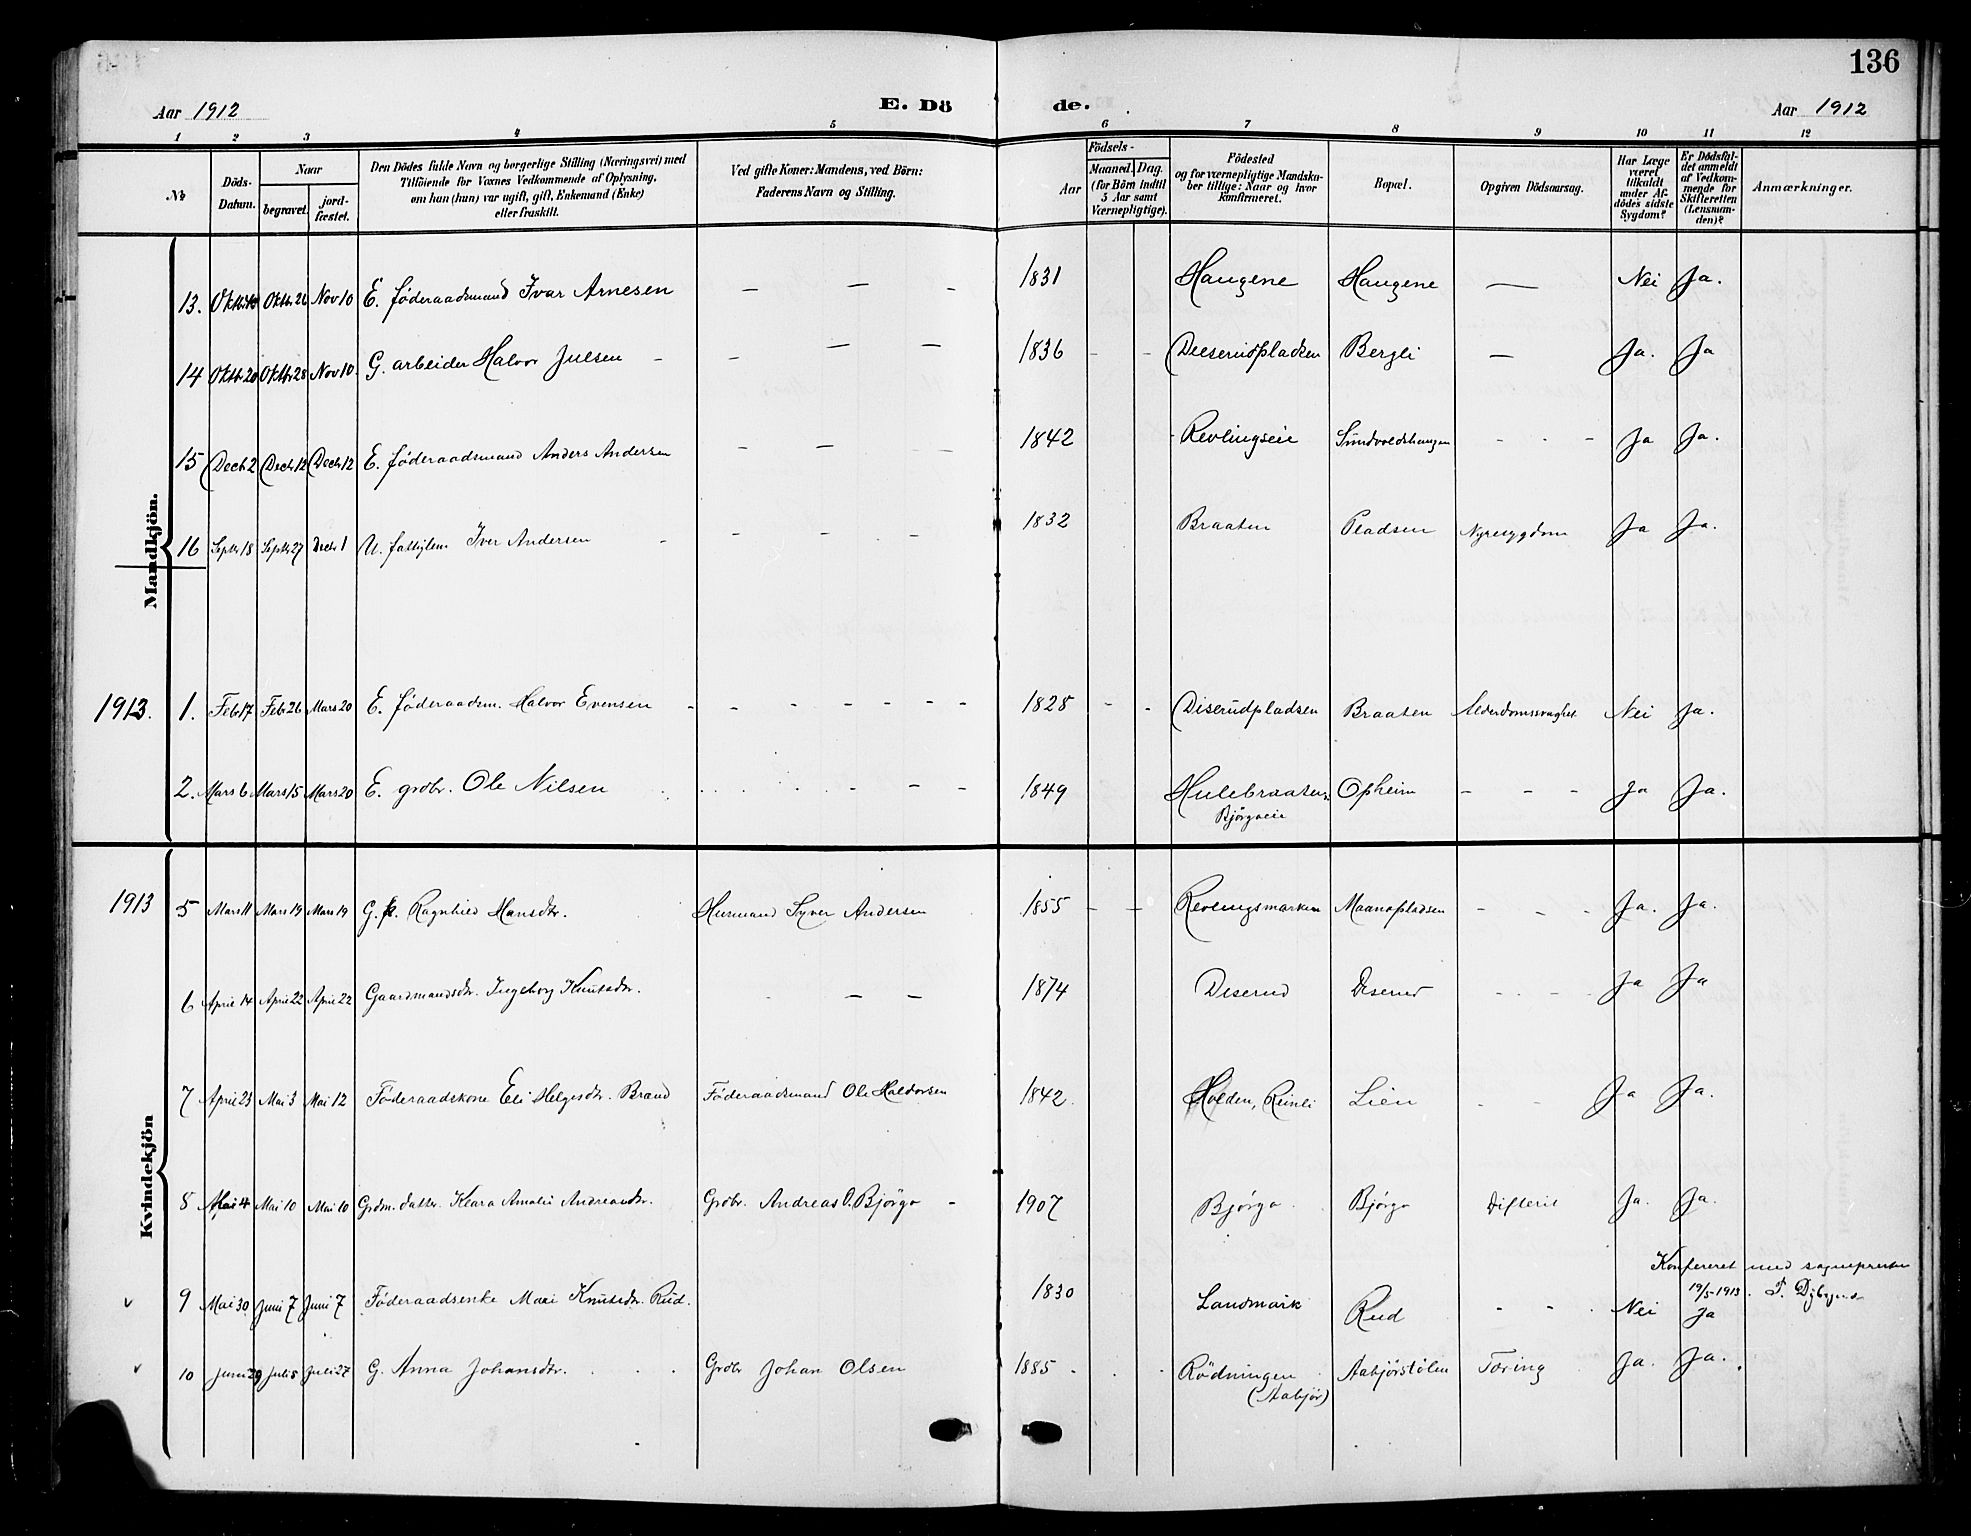 136
Aar 1912 E. Dö de. Aar 1912
1 2 3 4 5 6 7 8 9 10 11 12
No
Döds-Datum.
Naar
begravet. jord-fæstet.
Den Dödes fulde Navn og borgerlige Stilling (Næringsvei) med
Tilföiende for Voxnes Vedkommende af Oplysning,
om han (hun) var ugift, gift, Enkemand (Enke)
eller fraskilt.
Ved gifte Koner: Mandens, ved Börn:
Faderens Navn og Stilling.
Födsels-
Aar Maaned. Dag.
(for Börn indtil
5 Aar samt
Værnepligtige).
Födested
og for værnepligtige Mandska-
ber tillige: Naar og hvor
konfirmeret.
Bopæl.
Opgiven Dödsaarsag.
Har Læge
været
tilkaldt
under Af-
dödes sidste
Sygdom?
Er Dödsfal-
det anmeldt
af Vedkom-
mende for
Skifteretten
(Lensman-
den)?
Anmærkninger.
Mandkjön.
13. Oktbr Oktbr 26 Nov 10 E. föderaadsmand Ivar Arnesen — — — 1831 Haugene Haugene — Nei Ja.
14 Oktbr 20 Oktbr 28 Nov 10 G. arbeider Halvor Julsen - - — — 1836 - - Deeserudpladsen Bergli — Ja. Ja
15 Decb 2 Decb 12 Decb 12 E. föderaadsmand Anders Andersen - — - 1842 Revlingseie Sundvoldshaugen - - - Ja Ja.
16 Septb 18 Septb 27 Decb 1 U. fattiglem Iver Andersen - - - - - 1832 Braaten Pladsen Nyresygdom Ja Ja.
1913. 1. Feb 17 Feb 26 Mars 20 E. föderaadsm. Halvor Evensen - - - - - - - 1828 - - Diserudpladsen Braaten Alderdomssvaghet Nei Ja.
2. Mars 6 Mars 15 Mars 20 E. grdbr. Ole Nilsen - - - 1849 Hulebraaten Opheim - - - Ja Ja.
Bjørgoeie
Kvindekjön
1913 5 Mars 11 Mars 19 Mars 19 G. k. Ragnhild Hansdtr. Husmand Syver Andersen 1855 - — Revlingsmarken Maanapladsen - - - Ja. Ja.
6 April 14 April 22 April 22 Gaardmandsdtr. Ingeborg Knutsdtr. — — 1874 Diserud Diserud - - - - Ja Ja
7 April 23 Mai 3 Mai 12 Föderaadskone Eli Helgesdtr. Brand Föderaadsmand Ole Haldorsen 1842. Holden, Reinli Lien - - Ja Ja.
8 Mai 4 Mai 10 Mai 10 Grdm. datter Klara Amalie Andreasdtr. Grdbr. Andreas O. Bjørgo - 1907 Bjørgo Bjørgo Difterit Ja. Ja.
Konfereret med sogneprest
19/5-1913.
9 Mai 30 Juni 7 Juni 7 Föderaadsenke Mari Knutsdtr. Rud. 1830 Landmark Rud - - Nei Ja
10 Juni 29 Juli 5 Juli 27 G. Anna Johansdtr. Grdbr Johan Olsen 1885 Rödningen Aabjörstölen Tæring Ja. Ja.
(Aabjör)